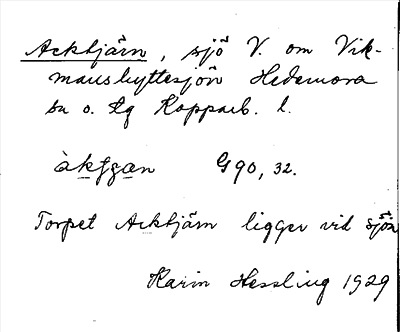 Acktjärn, sjö V. om Vik-
manshyttesjön Hedemora
sn o. tg Kopparb. l.
àktjan G 90, 32.
Torpet Acktjärn ligger vid sjön
Karin Hessling 1929